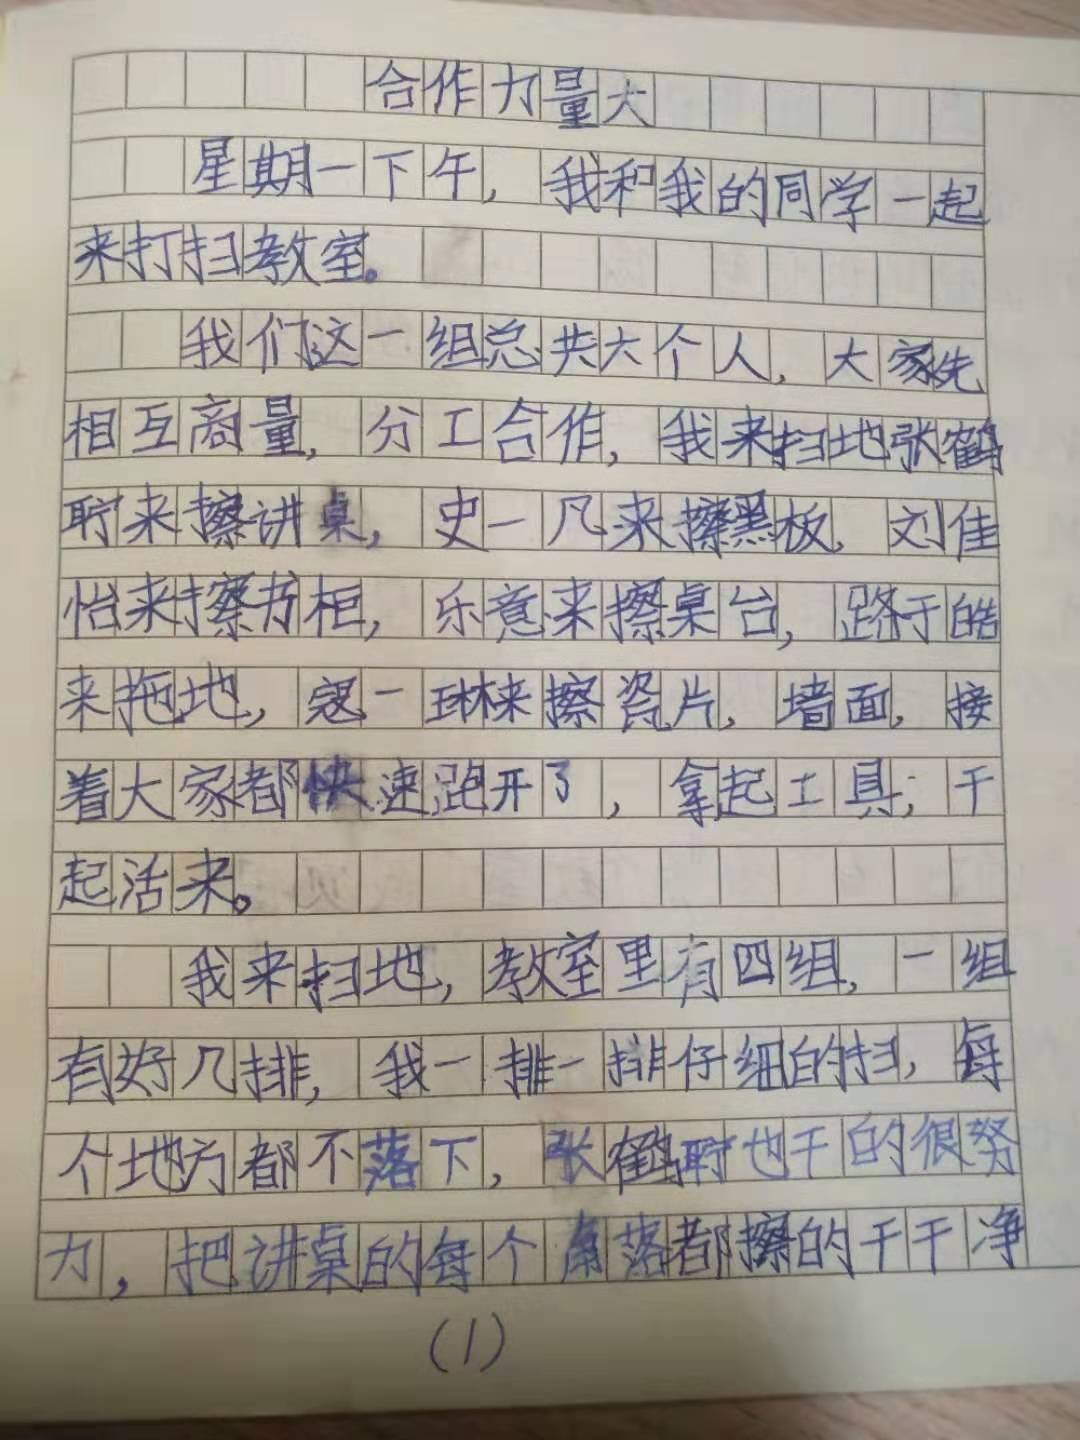 合作力量大
星期一下午，我和我的同学一起
来打扫教室。
我们这一组总共六个人，大家先
相互商量，分工合作，我来扫地张鹤
聍来擦讲桌，史一凡来擦黑板，刘佳
怡来擦书柜，乐意来擦桌台，路于皓
来拖地，寇一琳来擦瓷片，墙面，接
着大家都快速跑开了，拿起工具，干
起活来。
我来扫地，教室里有四组，一组
有好几排，我一排一排仔细的扫，每
个地方都不落下，张鹤聍也干的很努
力，把讲桌的每个角落都擦的干干净
(1)